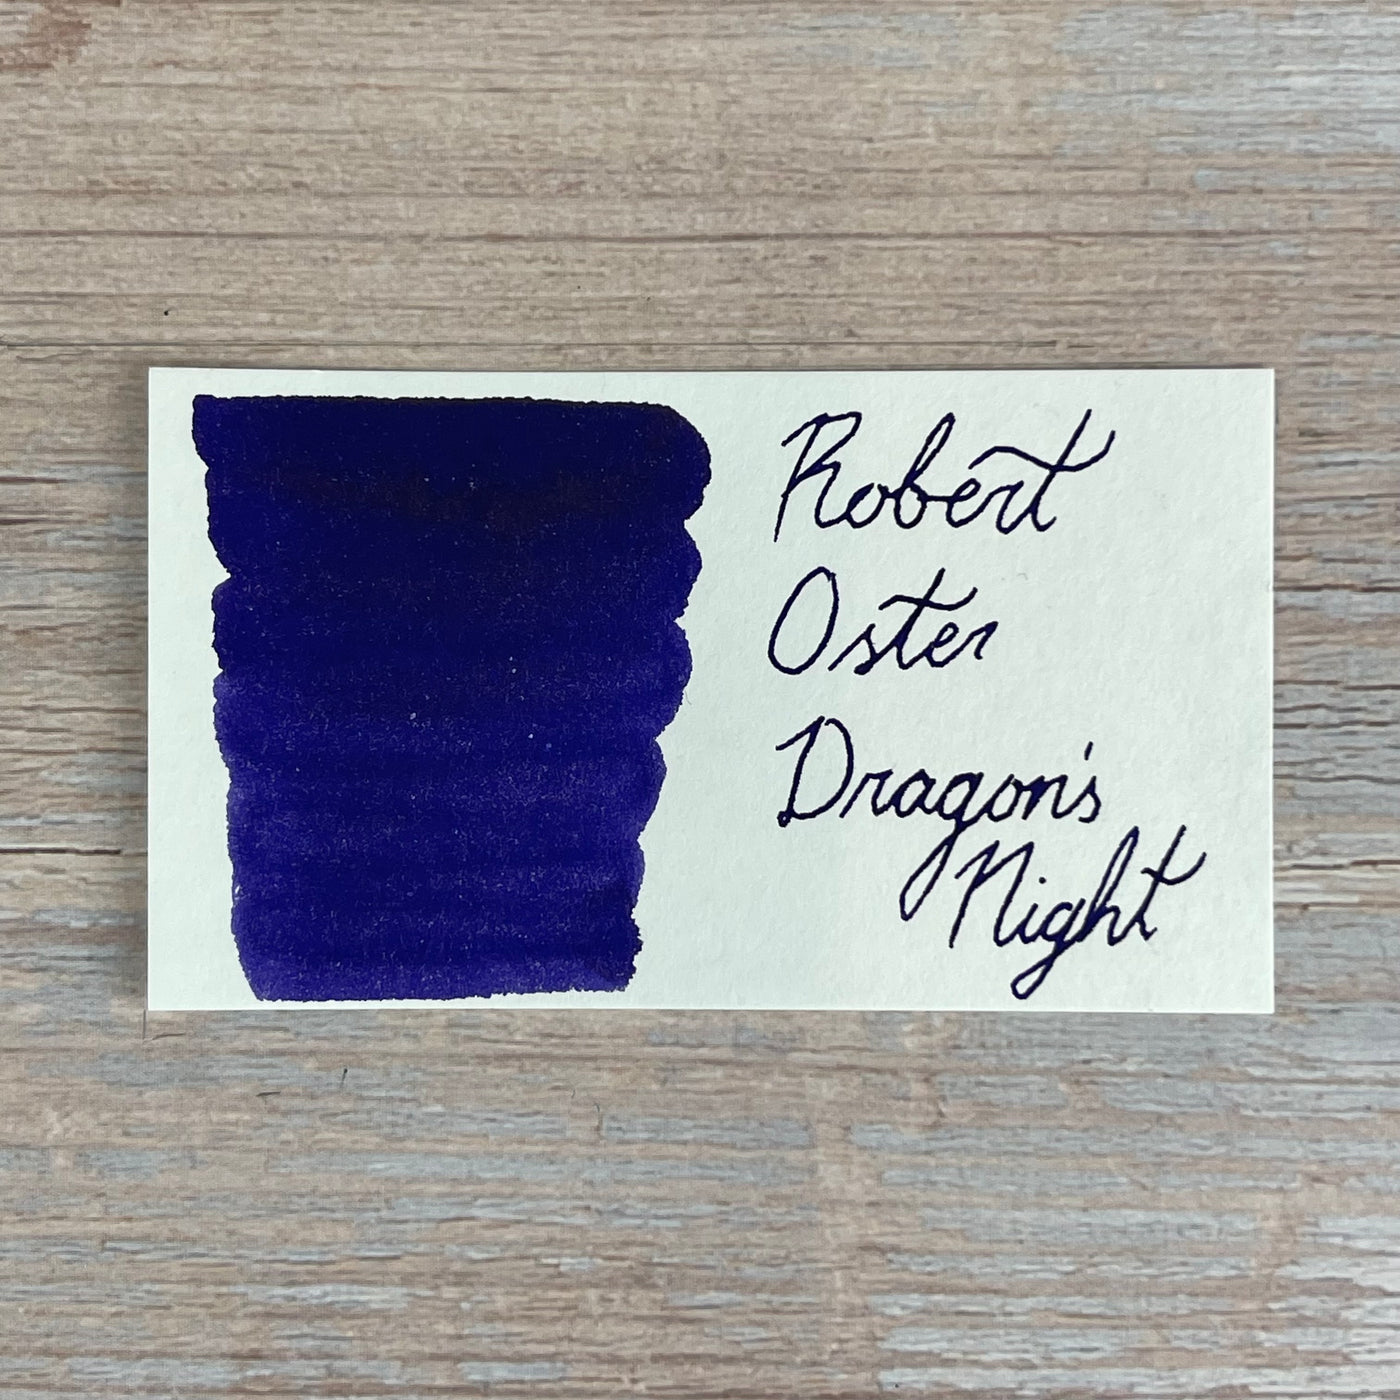 Robert
Oster
Dragon's
Night